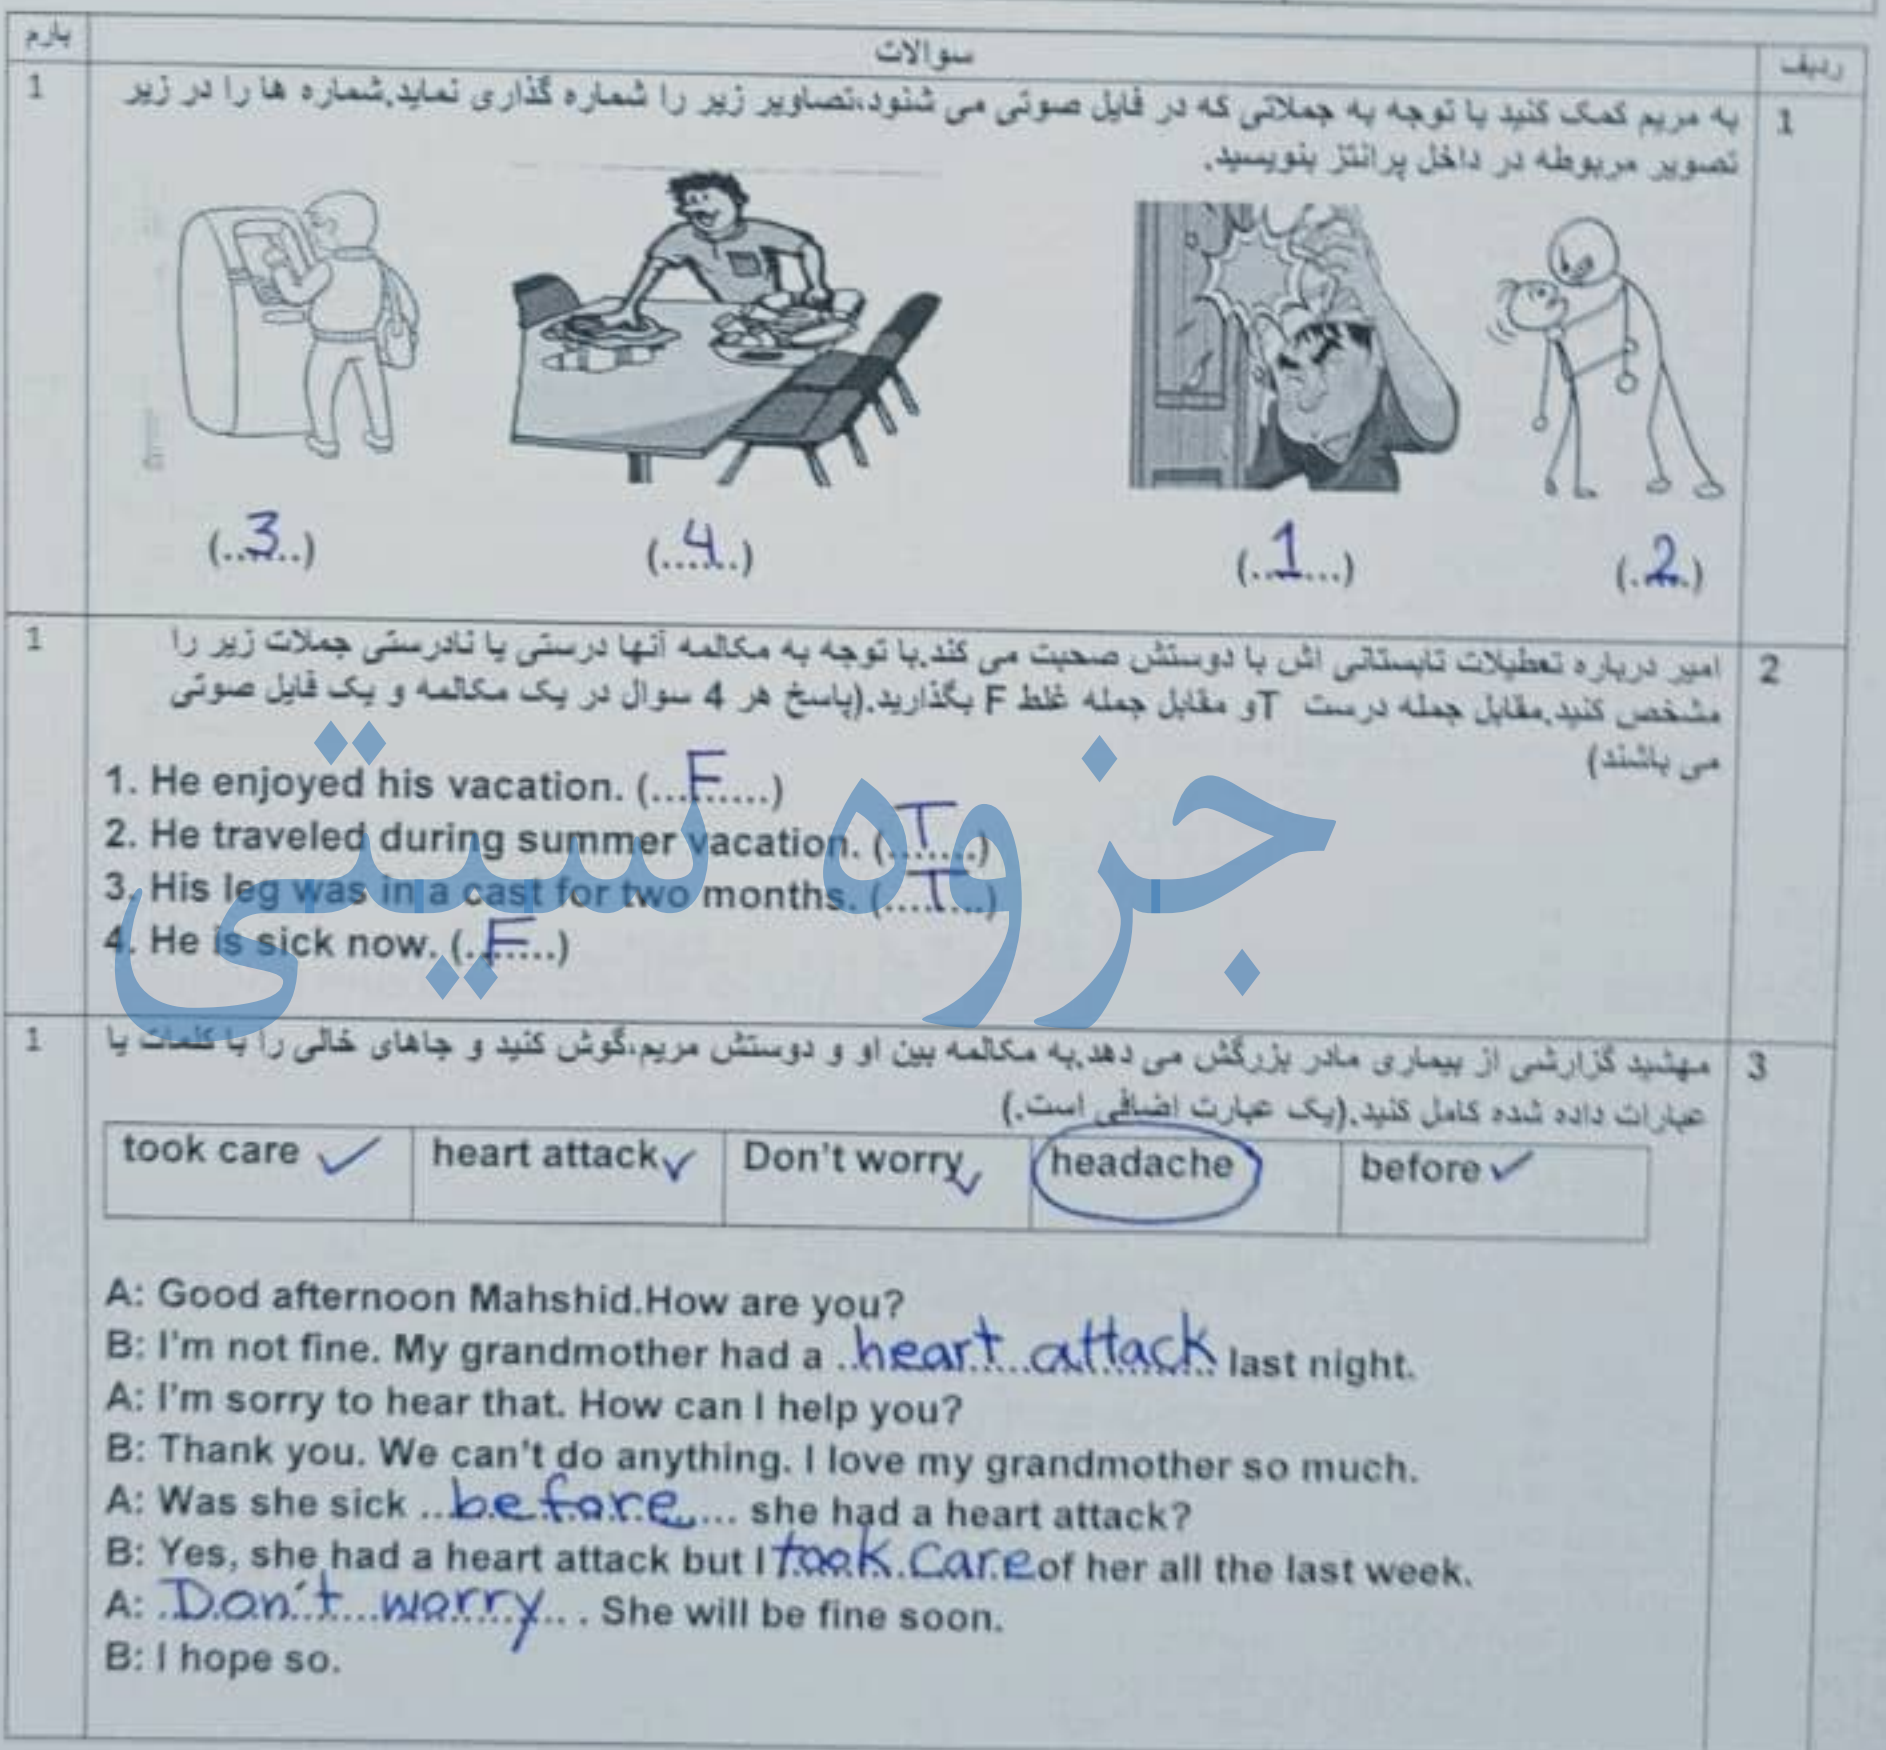 ردیف سوالات بارم
1 به مریم کمک کنید با توجه به جملاتی که در فایل صوتی می شنود،تصاویر زیر را شماره گذاری نماید.شماره ها را در زیر 1
تصویر مربوطه در داخل پرانتز بنویسید.
(..3..) (...4...) (..1...) (.2.)
2 امیر درباره تعطیلات تابستانی اش با دوستش صحبت می کند.با توجه به مکالمه آنها درستی یا نادرستی جملات زیر را 1
مشخص کنید.مقابل جمله درست T و مقابل جمله غلط F بگذارید.(پاسخ هر 4 سوال در یک مکالمه و یک فایل صوتی
می باشند)
1. He enjoyed his vacation. (...F.....)
2. He traveled during summer vacation. (...T....)
3. His leg was in a cast for two months. (....T....)
4. He is sick now. (..F....)
جزوه سیتی
3 مهشید گزارشی از بیماری مادر بزرگش می دهد.به مکالمه بین او و دوستش مریم،گوش کنید و جاهای خالی را با کلمات یا 1
عبارات داده شده کامل کنید.(یک عبارت اضافی است.)
took care ✓ heart attack ✓ Don't worry ✓ headache before ✓
A: Good afternoon Mahshid.How are you?
B: I'm not fine. My grandmother had a ..heart attack.. last night.
A: I'm sorry to hear that. How can I help you?
B: Thank you. We can't do anything. I love my grandmother so much.
A: Was she sick ...before.... she had a heart attack?
B: Yes, she had a heart attack but I took care of her all the last week.
A: .Don't worry.. . She will be fine soon.
B: I hope so.